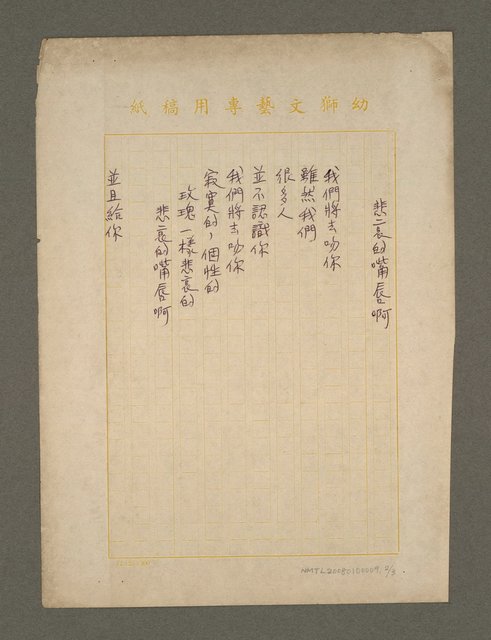 幼獅文藝專用稿紙
悲哀的嘴唇啊
我們將去吻你
雖然我們
很多人
並不認識你
我們將去吻你
寂寞的，個性的
玫瑰一樣悲哀的
悲哀的嘴唇啊
並且給你
NMTL20080100009, 2/3